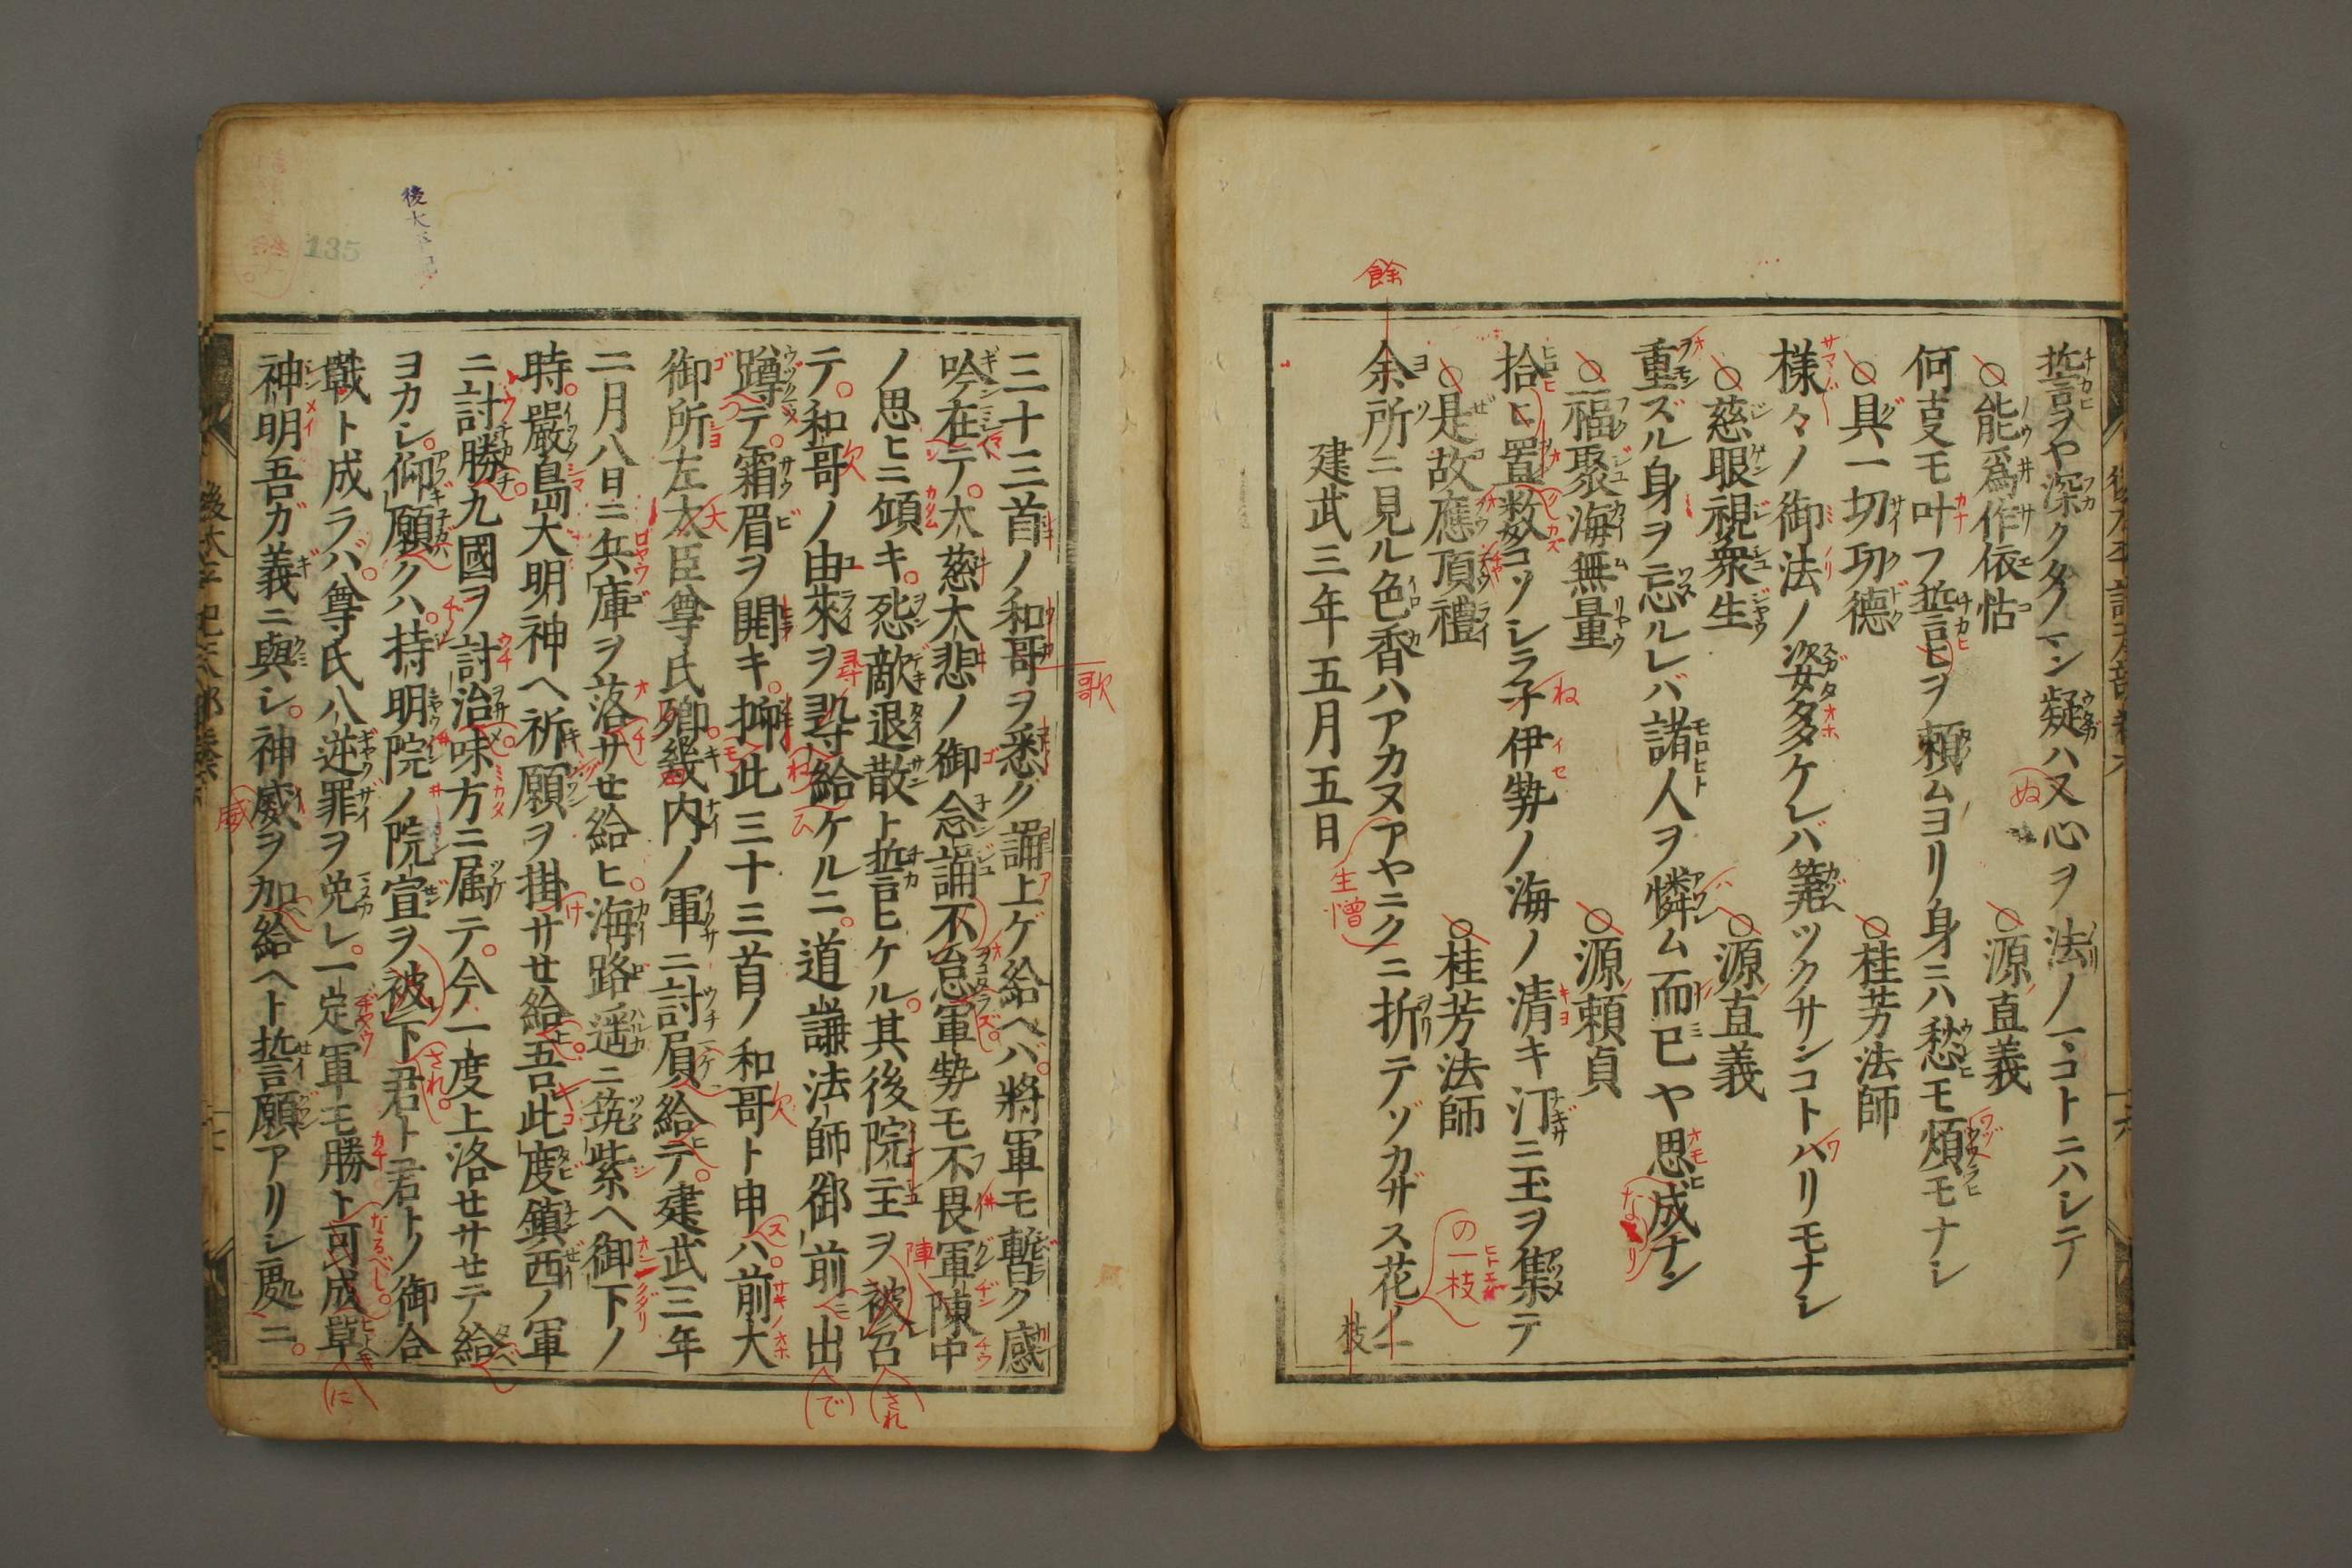 誓ヲヤ深クタノマン疑ハ又心ヲ法ノマコトニハシテ
○能爲作依怙　○源直義
何叓モ叶フ誓ヒヲ頼ムヨリ身ニハ愁モ煩モナシ
○具一切功德　○桂芳法師
様々ノ御法ノ姿多ケレバ筭ツクサンコトハリモナシ
○慈眼視衆生　○源直義
重ズル身ヲ忘ルレバ諸人ヲ憐ム而已ヤ思成ナン
○福聚海無量　○源頼貞
拾ヒ置数コソシラ子伊勢ノ海ノ清キ汀ニ玉ヲ集テ
○是故應頂禮　○桂芳法師
余所ニ見ル色香ハアカヌアヤニクニ折テゾカザス花ノ一
枝
建武三年五月五日
餘
ぬ
ね
生憎
なり
の一枝
三十三首ノ和哥ヲ悉ク誦上ゲ給ヘバ將軍モ暫ク感
吟在テ大慈大悲ノ御念誦不怠軍勢モ不畏軍陳中
ノ思ヒニ傾キ怨敵退散ト誓ヒケル其後院主ヲ被召
テ和哥ノ由來ヲ尋給ケルニ道謙法師御前出
蹲テ霜眉ヲ開キ抑此三十三首ノ和哥ト申ハ前大
御所左太臣尊氏卿畿内ノ軍ニ討負給テ建武三年
二月八日ニ兵庫ヲ落サセ給ヒ海路遥ニ筑紫ヘ御下ノ
時嚴島大明神ヘ祈願ヲ掛サセ給吾此度鎮西ノ軍
ニ討勝九國ヲ討治味方ニ属テ今一度上洛セサセテ給
ヨカシ仰願クハ持明院ノ院宣ヲ被下君ト君トノ御合
戰ト成ラバ尊氏八逆罪ヲ免レ一定軍モ勝ト可成單
神明吾ガ義ニ與シ神威ヲ加給ヘト誓願アリシ処ニ
歌
陣
され
で
大
され
なるべし
に
威
135